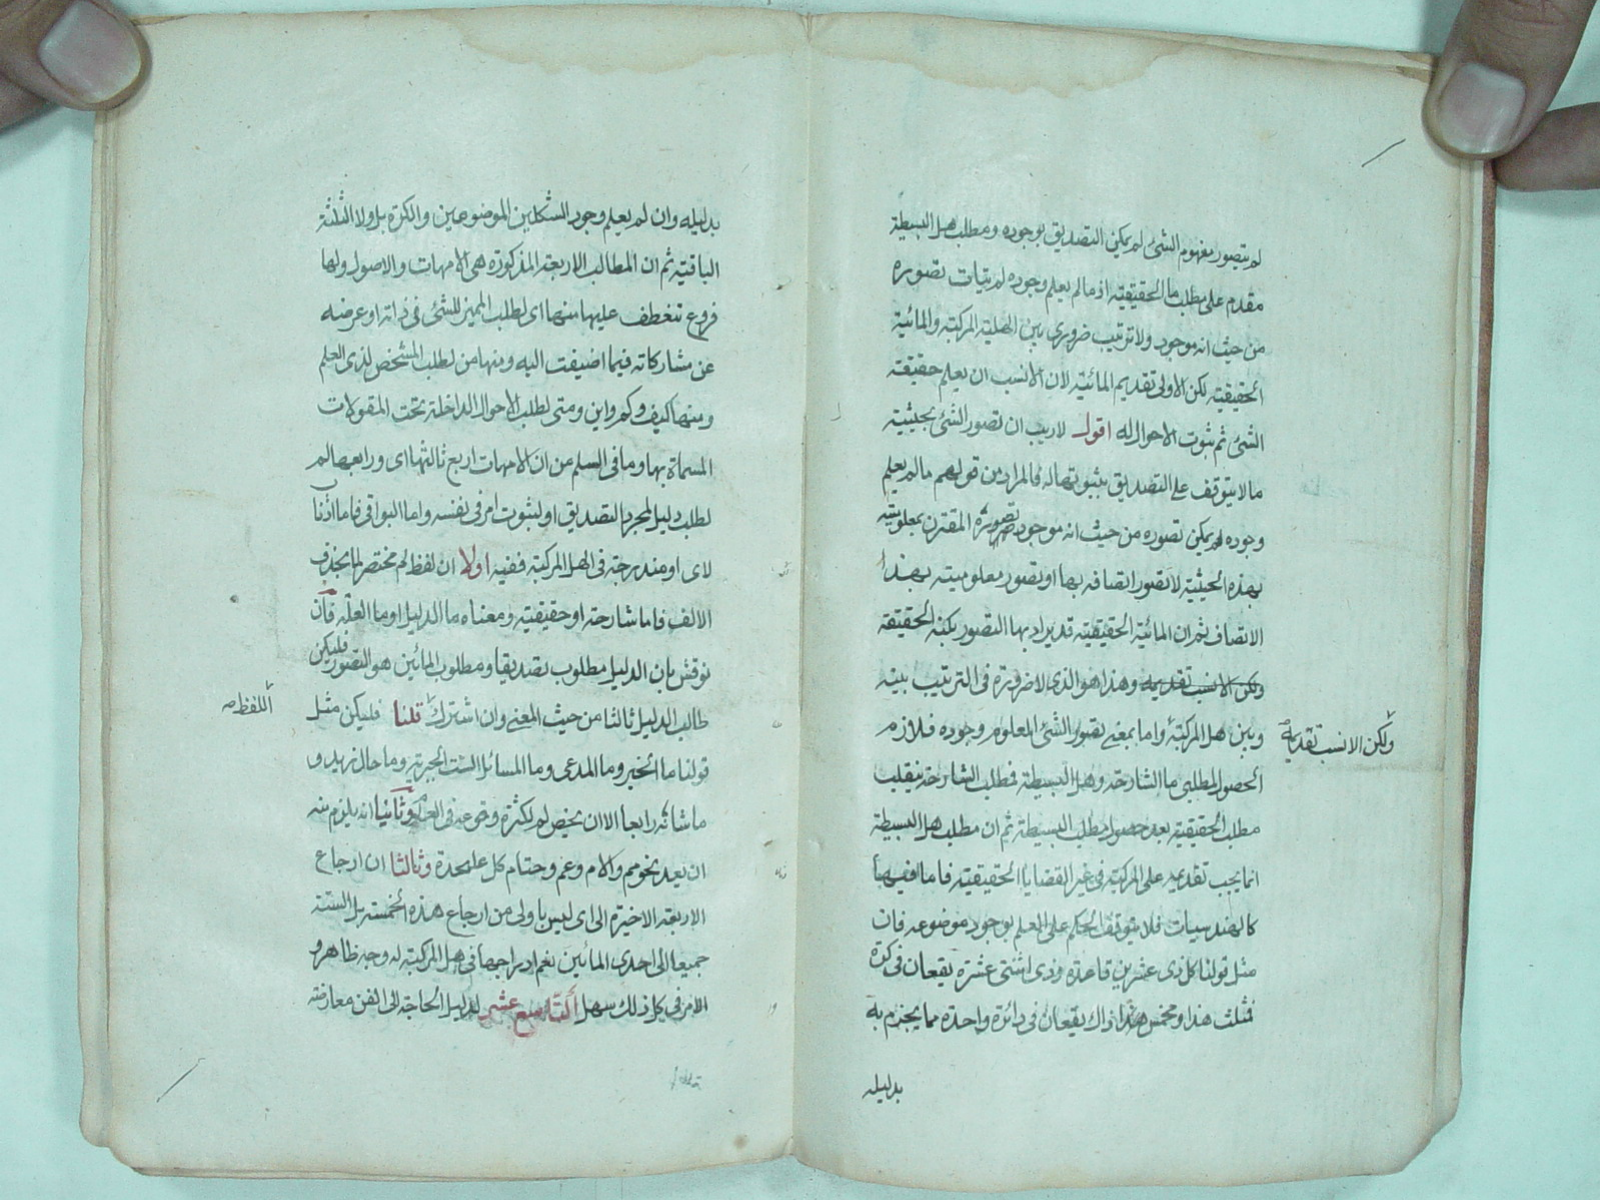 لم يتصور مفهوم الشئ لم يمكن التصديق بوجوده ومطلب هل البسيطة
مقدم على مطلب ما الحقيقية اذ ما لم يعلم وجوده لم يتيات تصوره
من حيث انه موجود ولا ترتيب ضروري بين الهلية المركبة والمائية
الحقيقية لكن الاولى تقديم المائية لان الانسب ان يعلم حقيقته
الشئ ثم ثبوت الاحوال له اقول لاريب ان تصور الشئ بحيثية
ما لا يتوقف على التصديق بثبوتها له فالمراد من قولهم ما لم يعلم
وجوده لم يمكن تصوره من حيث انه موجود تصوره المقترن بمعلوميته
بهذه الحيثية لا تصور اتصافه بها او تصور معلوميته بهذا
الاتصاف ثم ان المائية الحقيقية قد يراد بها التصور بكنه الحقيقة
ولكن الانسب تقديمه وهذا هو الذي لا ضرورة في الترتيب بينه
وبين هل المركبة واما بمعنى تصور الشئ المعلوم وجوده فلازم
ولكن الانسب تقديمه
الحصول لمطلبى ما الشارحة وهل البسيطة فمطلب الشارحة ينقلب
مطلب الحقيقية بعد حصول مطلب البسيطة ثم ان مطلب هل البسيطة
انما يجب تقديمه على المركبة في غير القضايا الحقيقية فاما فيها
كالهندسيات فلا يتوقف الحكم على العلم بوجود موضوعه فان
مثل قولنا كل ذى عشرين قاعدة وذى اثنتى عشرة يقعان في كرة
فمثلث هذا ومخمس هذا ذاك يقعان في دائرة واحدة مما يجزم به
بدليله
بدليله وان لم يعلم وجود الشكلين الموضوعين والكرة بل ولا الثلثة
الباقية ثم ان المطالب الاربعة المذكورة هى الامهات والاصول ولها
فروع تنعطف عليها منها اى لطلب المميز للشئ في ذاته او عرضه
عن مشاركاته فيما اضيفت اليه ومنها من لطلب المشخص لذى العلم
ومنها كيف وكم واين ومتى لطلب الاحوال الداخلة تحت المقولات
المسماة بها وما في السلم من ان الامهات اربع ثالثتها اى ورابعها لم
لطلب دليل لمجرد التصديق او لثبوت امر في نفسه واما البواقى فاما اذنا
لاى او مندرجة في الهل المركبة ففيه اولا ان لفظ لم مختصر لما بحذف
الالف فاما شارحة او حقيقية ومعناه ما الدليل او ما العلة فان
نوقش بان الدليل مطلوب تصديقا ومطلوب المائين هو التصور فليكن
طالب الدليل ثالثا من حيث المعنى وان اشترك قلنا فليكن مثل
اللفظ صح
قولنا ما الخبر وما المدعى وما المسائل الست الجبرية وما حال زيد و
ما شانه رابعا الا ان يخص لم لكثرة وقوعه في العلم وثانيا انه يلزم منه
ان يعد نحو مم والام وعم وحتام كل على حدة وثالثا ان ارجاع
الاربعة الاخيرة الى اى ليس باولى من ارجاع هذه الخمسة بل الستة
جميعا الى احدى المائين نعم ادراجها في هل المركبة له وجه ظاهر و
الامر في كل ذلك سهل التاسع عشر لدليل الحاجة الى الفن معارضة